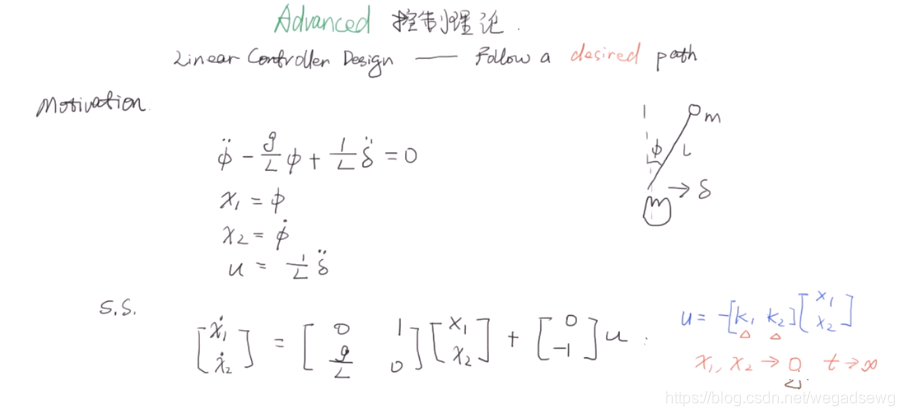 Advanced 控制理论.
Linear Controller Design —— Follow a desired path
Motivation.
φ̈ - g/L φ + 1/L δ̈ = 0
x₁ = φ
x₂ = φ̇
u = 1/L δ̈
m
φ
L
→ δ
S.S.
[ẋ₁ ẋ₂] = [0 1 g/L 0][x₁ x₂] + [0 -1]u.
u = -[k₁ k₂][x₁ x₂]
x₁, x₂ → 0 t → ∞
https://blog.csdn.net/wegadsewg